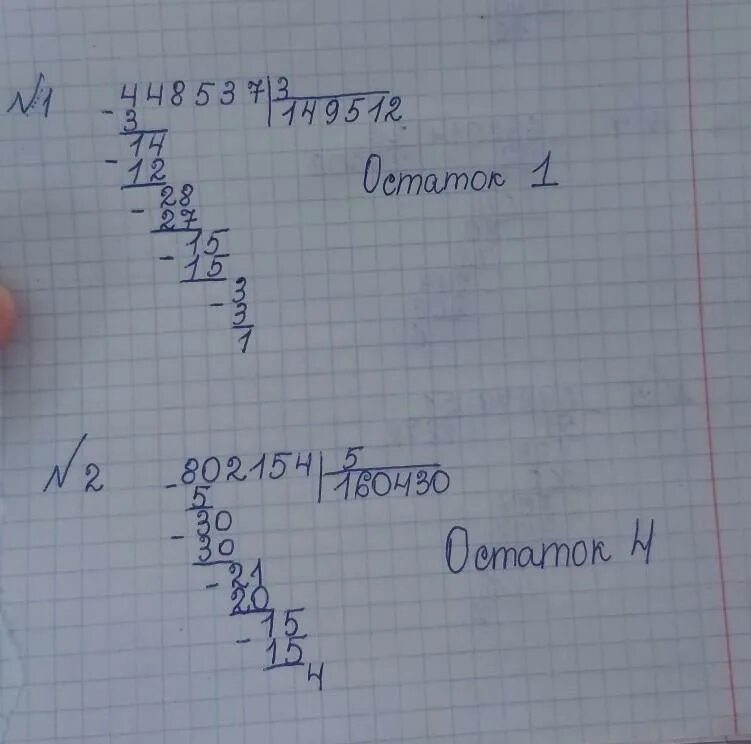 №1 448537 | 3
- 3 149512
14
- 12 Остаток 1
28
- 27
15
- 15
3
- 3
1
№2 802154 | 5
- 5 160430
30
- 30
21 Остаток 4
- 20
15
- 15
4